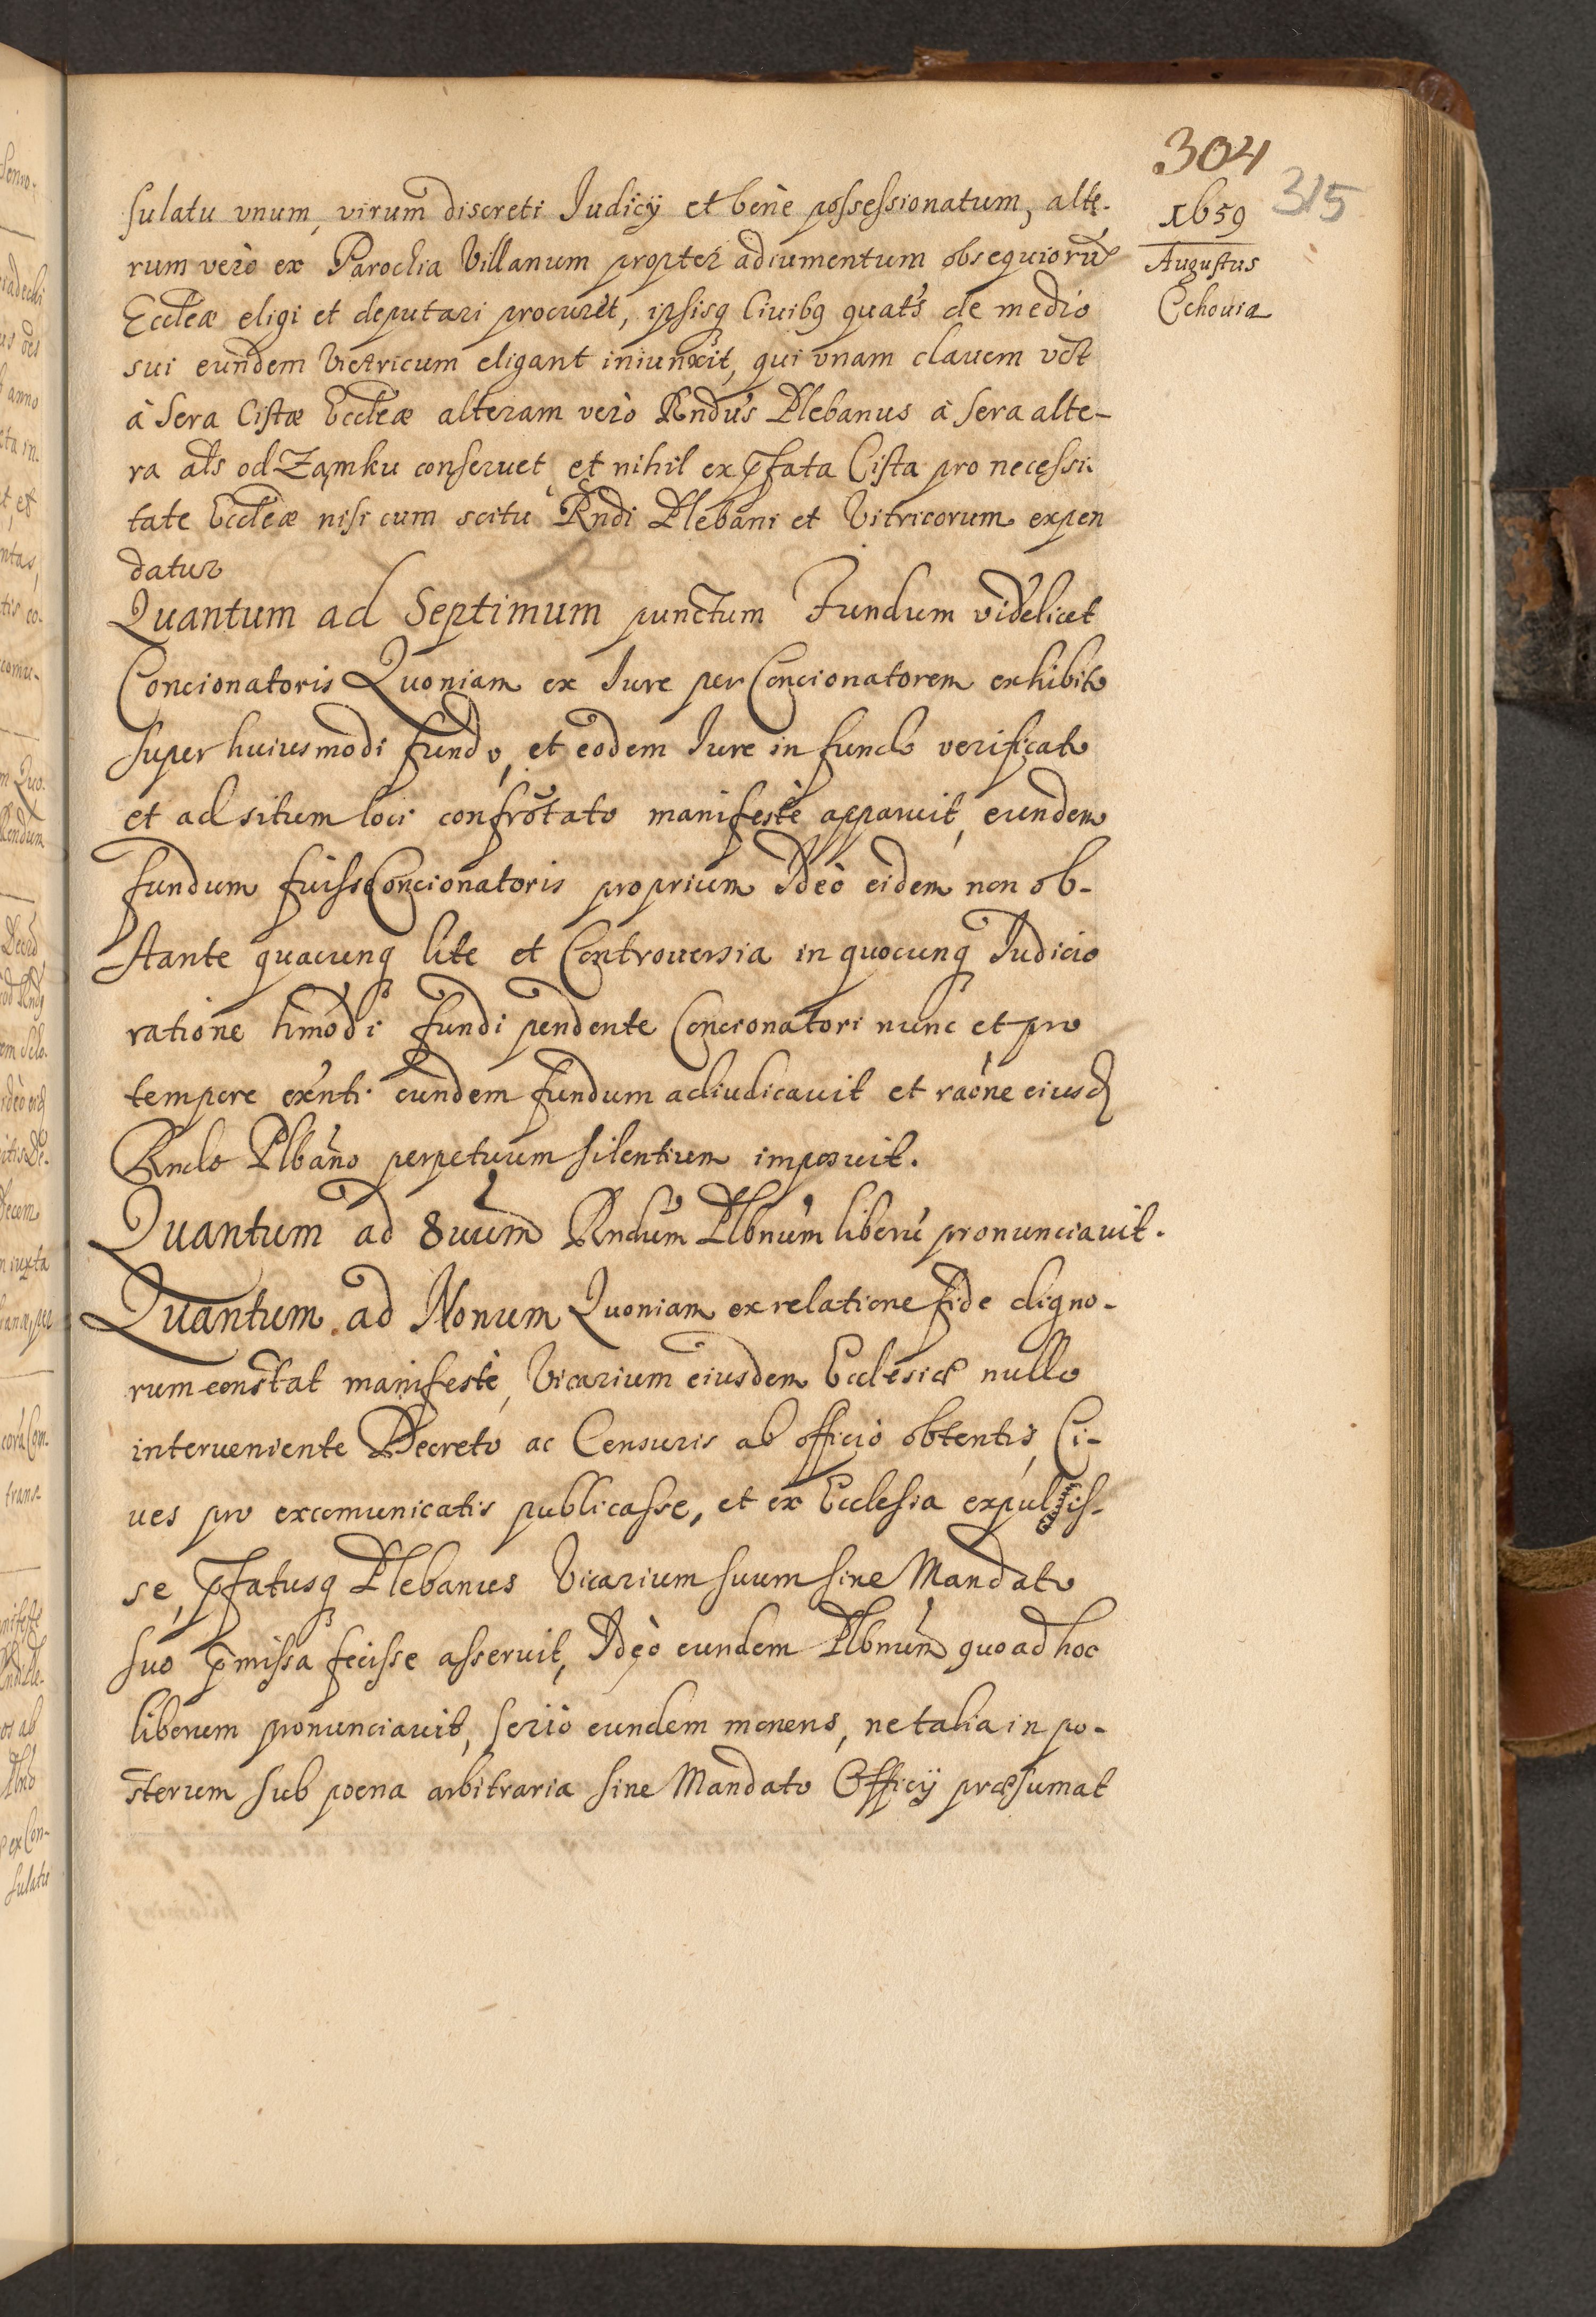 304
315
1659
Augustus
Cchouia
sulatu vnum, virum discreti Iudicÿ et benè possessionatum, alte-
rum verò ex Parochia Villanum propter adiumentum obsequiorũ
Eccleæ eligi et deputari procuret, ipsisq Ciuibq quats de medio
sui eundem Vietricum eligant iniunxit, qui vnam clauem vt
à Sera Cistæ Eccleæ alteram verò Rndus Plebanus à sera alte-
ra als od Zamku conseruet, et nihil ex p̄fata Cista pro necessi-
tate Eccleæ nisi cum scitu Rndi Plebani et Vitricorum expen
datur
Quantum ad Septimum punctum Fundum videlicet
Concionatoris Quoniam ex Iure per Concionatorem exhibito
super huiusmodi fundo, et eodem Iure in fundo verificato
et ad situm loci confrõtato manifestè apparuit, eundem
fundum fuisse Concionatoris proprium Ideò eidem non ob-
stante quacunq lite et Controuersia in quocunq Iudicio
ratione hmodi fundi pendente Concionatori nunc et pro
tempore exnti eundem fundum adiudicauit et raone eiusd
Rndo Plbano perpetuum silentium imposuit.
Quantum ad 8uum Rndum Plbnum liberũ pronunciauit.
Quantum ad Nonum Quoniam ex relatione fide digno-
rum constat manifestè, Vicarium eiusdem Ecclesiæ nullo
interueniente Decreto ac Censuris ab officio obtentis, Ci-
ues pro excomunicatis publicasse, et ex Ecclesia expulis-
se, p̄fatusq Plebanus Vicarium suum sine Mandato
suo p̄missa fecisse asseruit, Ideò eundem Plbnum quo ad hoc
liberum pronunciauit, seriò eundem monens, ne talia in po-
sterum sub poena arbitraria sine Mandato Officÿ præsumat